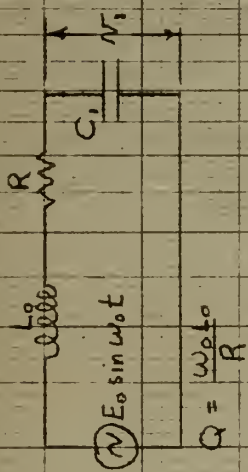 L₀
R
C₁
v₁
E₀ sin ω₀t
Q = ω₀L₀/R